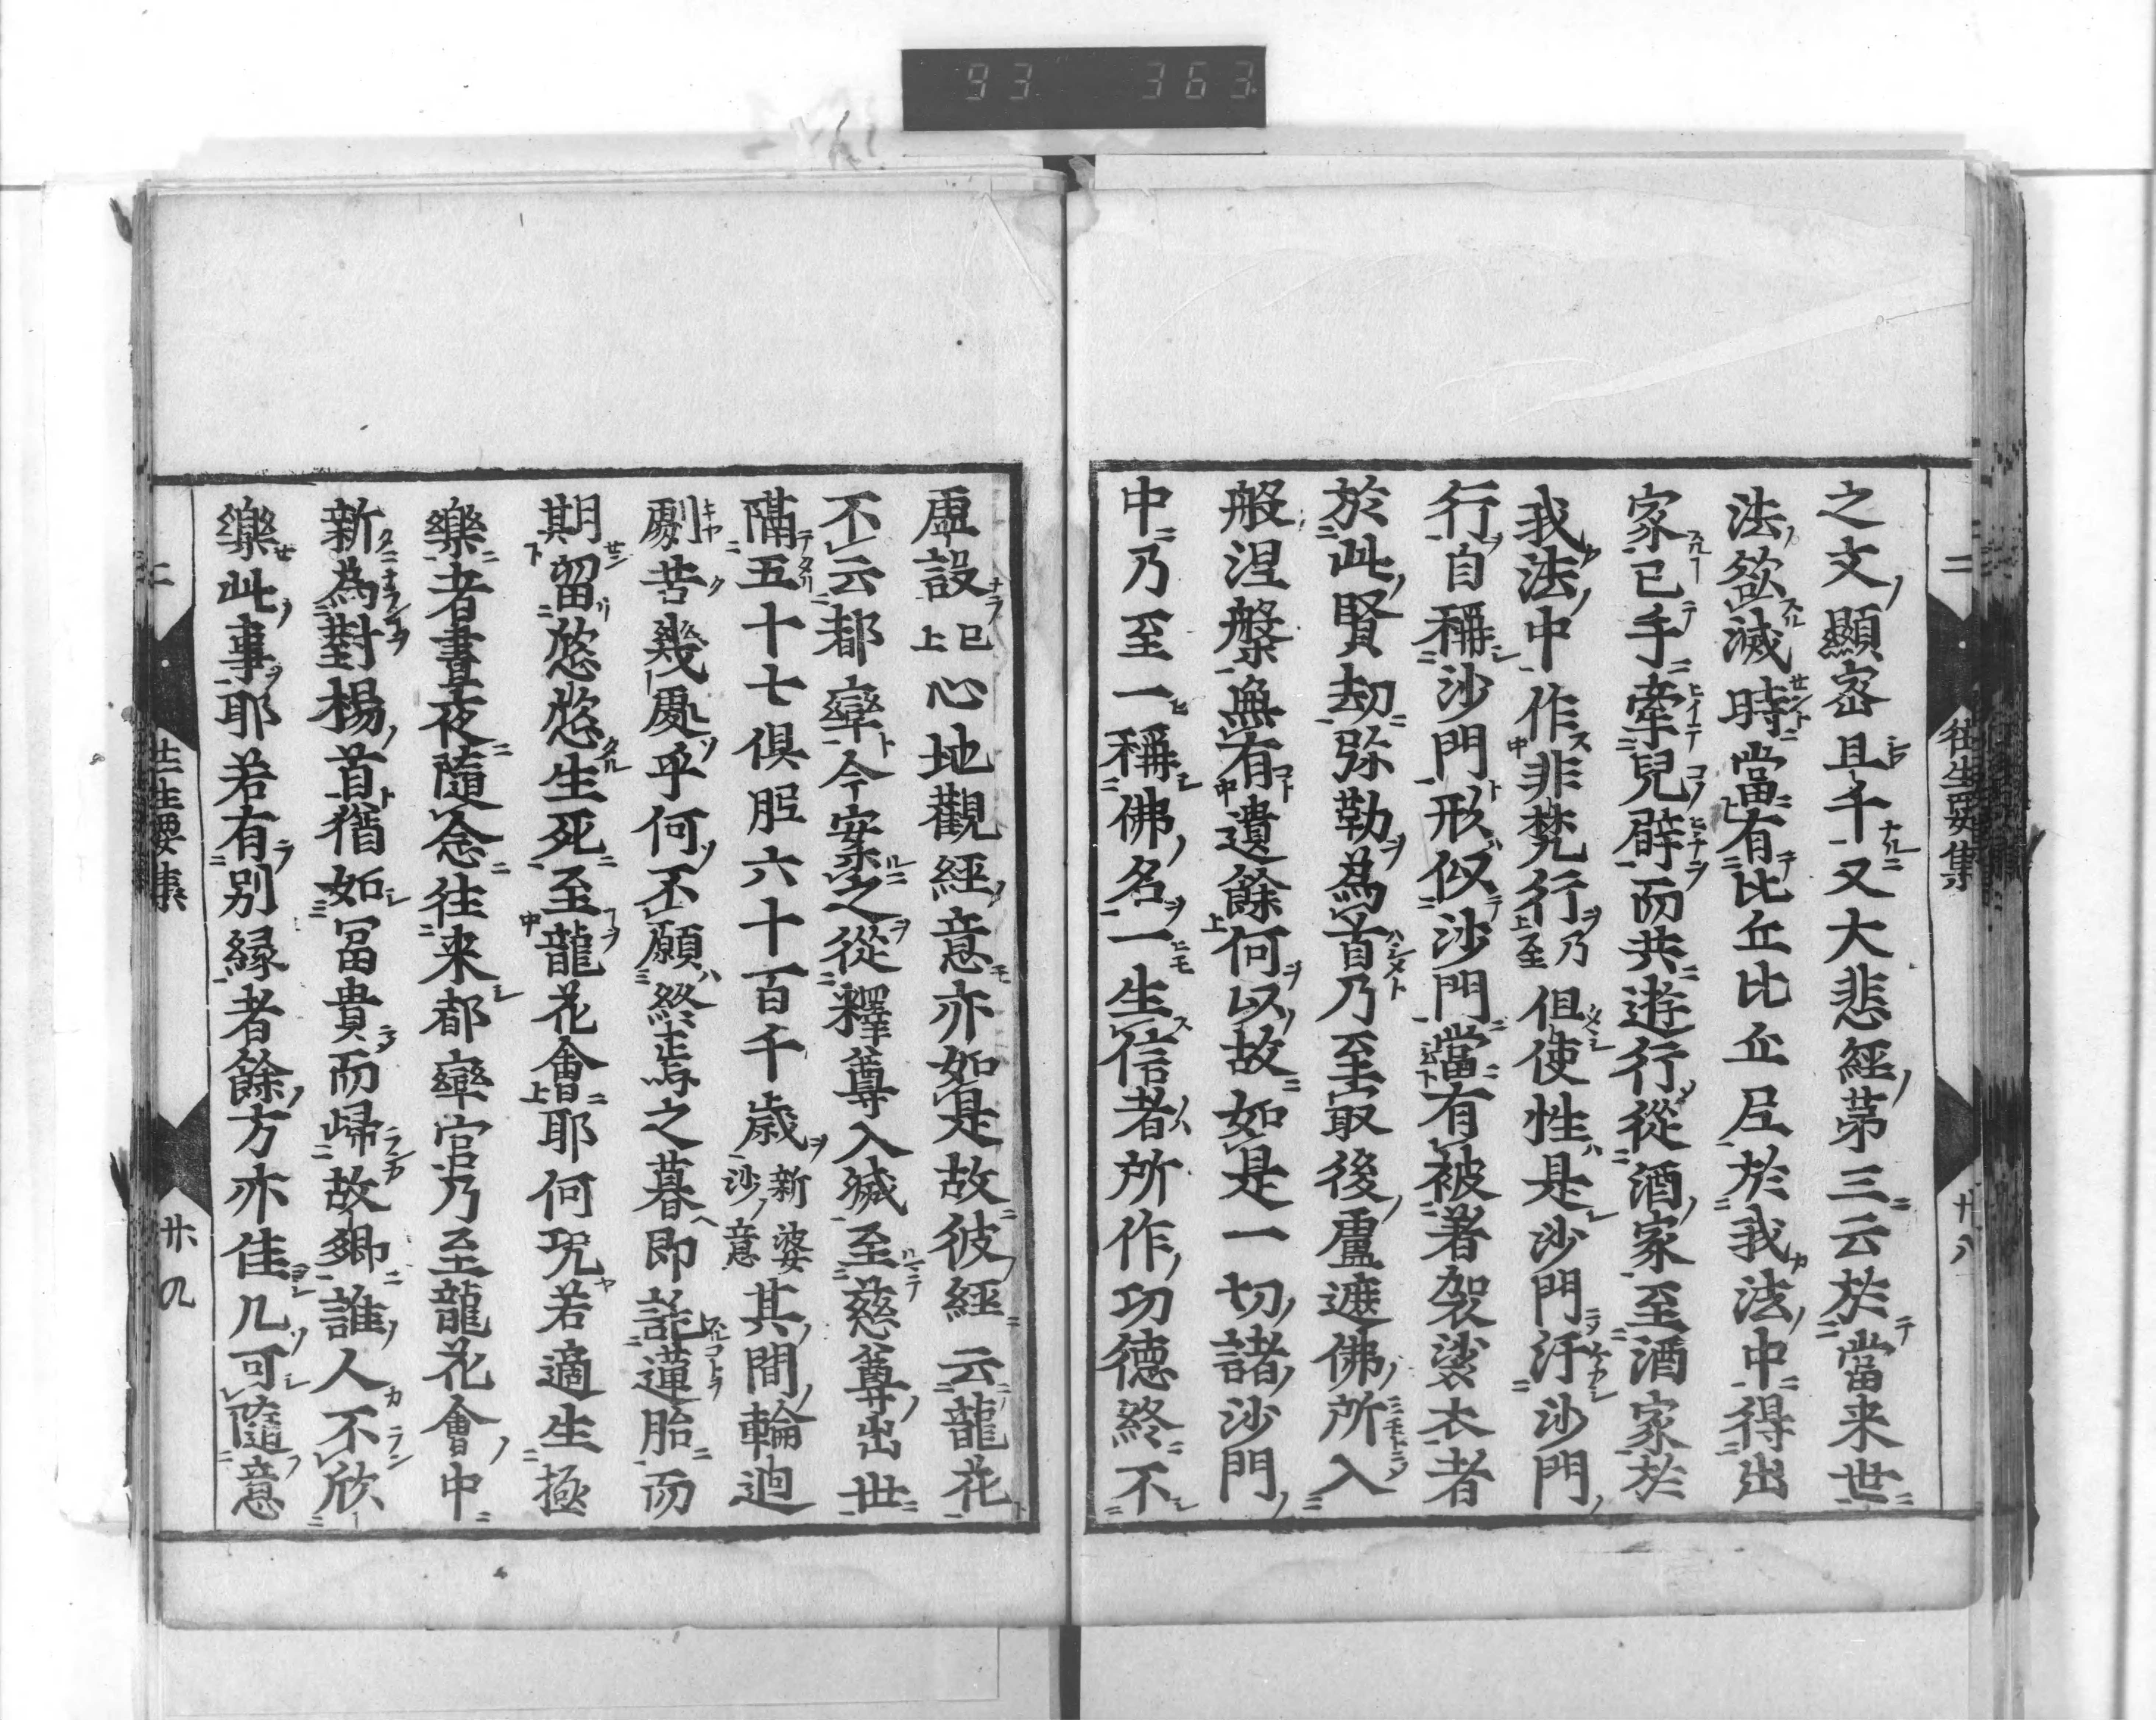 93 363
往生要集
二
廿八
之文顯密且千又大悲經第三云於當来世
法欲滅時當有比丘比丘尼於我法中得出
家已手牽兒臂而共遊行從酒家至酒家於
我法中作非梵行乃至但使性是沙門汙沙門
行自稱沙門形似沙門當有被著袈裟衣者
於此賢劫弥勒為首乃至最後盧遮佛所入
般涅槃無有遺餘何以故如是一切諸沙門
中乃至一稱佛名一生信者所作功德終不
虛設已上心地觀經意亦如是故彼經云龍花
不云都率今案之從釋尊入滅至慈尊出世
隔五十七俱胝六十百千歲新婆沙意其間輪迴
劇苦幾處乎何不願終焉之暮即託蓮胎而
期留悠悠生死至龍花會耶何況若適生極
樂者晝夜隨念往来都率宮乃至龍花會中
新為對揚首猶如冨貴而歸故鄉誰人不欣
樂此事耶若有別緣者餘方亦佳凡可隨意
二
往生要集
廿九